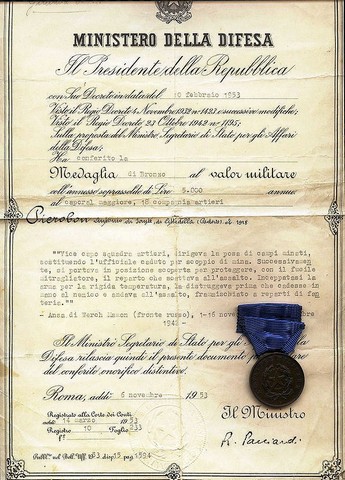 MINISTERO DELLA DIFESA
Il Presidente della Repubblica
con Suo Decreto in data del 10 febbraio 1953
Visto il Regio Decreto 4 Novembre 1932 n° 1423 e successive modifiche;
Visto il Regio Decreto 23 Ottobre 1942 n° 1195;
Sulla proposta del Ministro Segretario di Stato per gli Affari
della Difesa;
Ha conferito la
Medaglia di Bronzo al valor militare
coll'annesso soprassoldo di Lire 5.000 annue
al caporal maggiore, 18 compagnia artieri
Pierobon da Cittadella
"Vice capo squadra artieri, dirigeva la posa di campi minati,
sostituendo l'ufficiale caduto per scoppio di mina. Successivamen
te, si portava in posizione scoperta per proteggere, con il fucile
mitragliatore, il reparto che moveva all'assalto. Inceppatasi la
arma per la rigida temperatura, la distruggeva prima che cadesse in
mano al nemico e andava all'assalto, frammischiato a reparti di fan
teria."
- Ansa di Verch Mamon (fronte russo), 1-16
1942 -
Il Ministro Segretario di Stato per gli
Difesa rilascia quindi il presente documento
del conferito onorifico distintivo.
Roma, addì 6 novembre 1953
Registrato alla Corte dei Conti
addì 14 marzo 1953
Registro 10 Foglio 233
Il Ministro
R. Pacciardi
Pubbl. sul Boll. Uff. 1953 disp. 15 pag. 1594